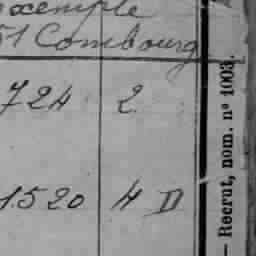 exemple
51 Combourg
724 2
1520 4 D
— Recrut, nom. nº 1003.